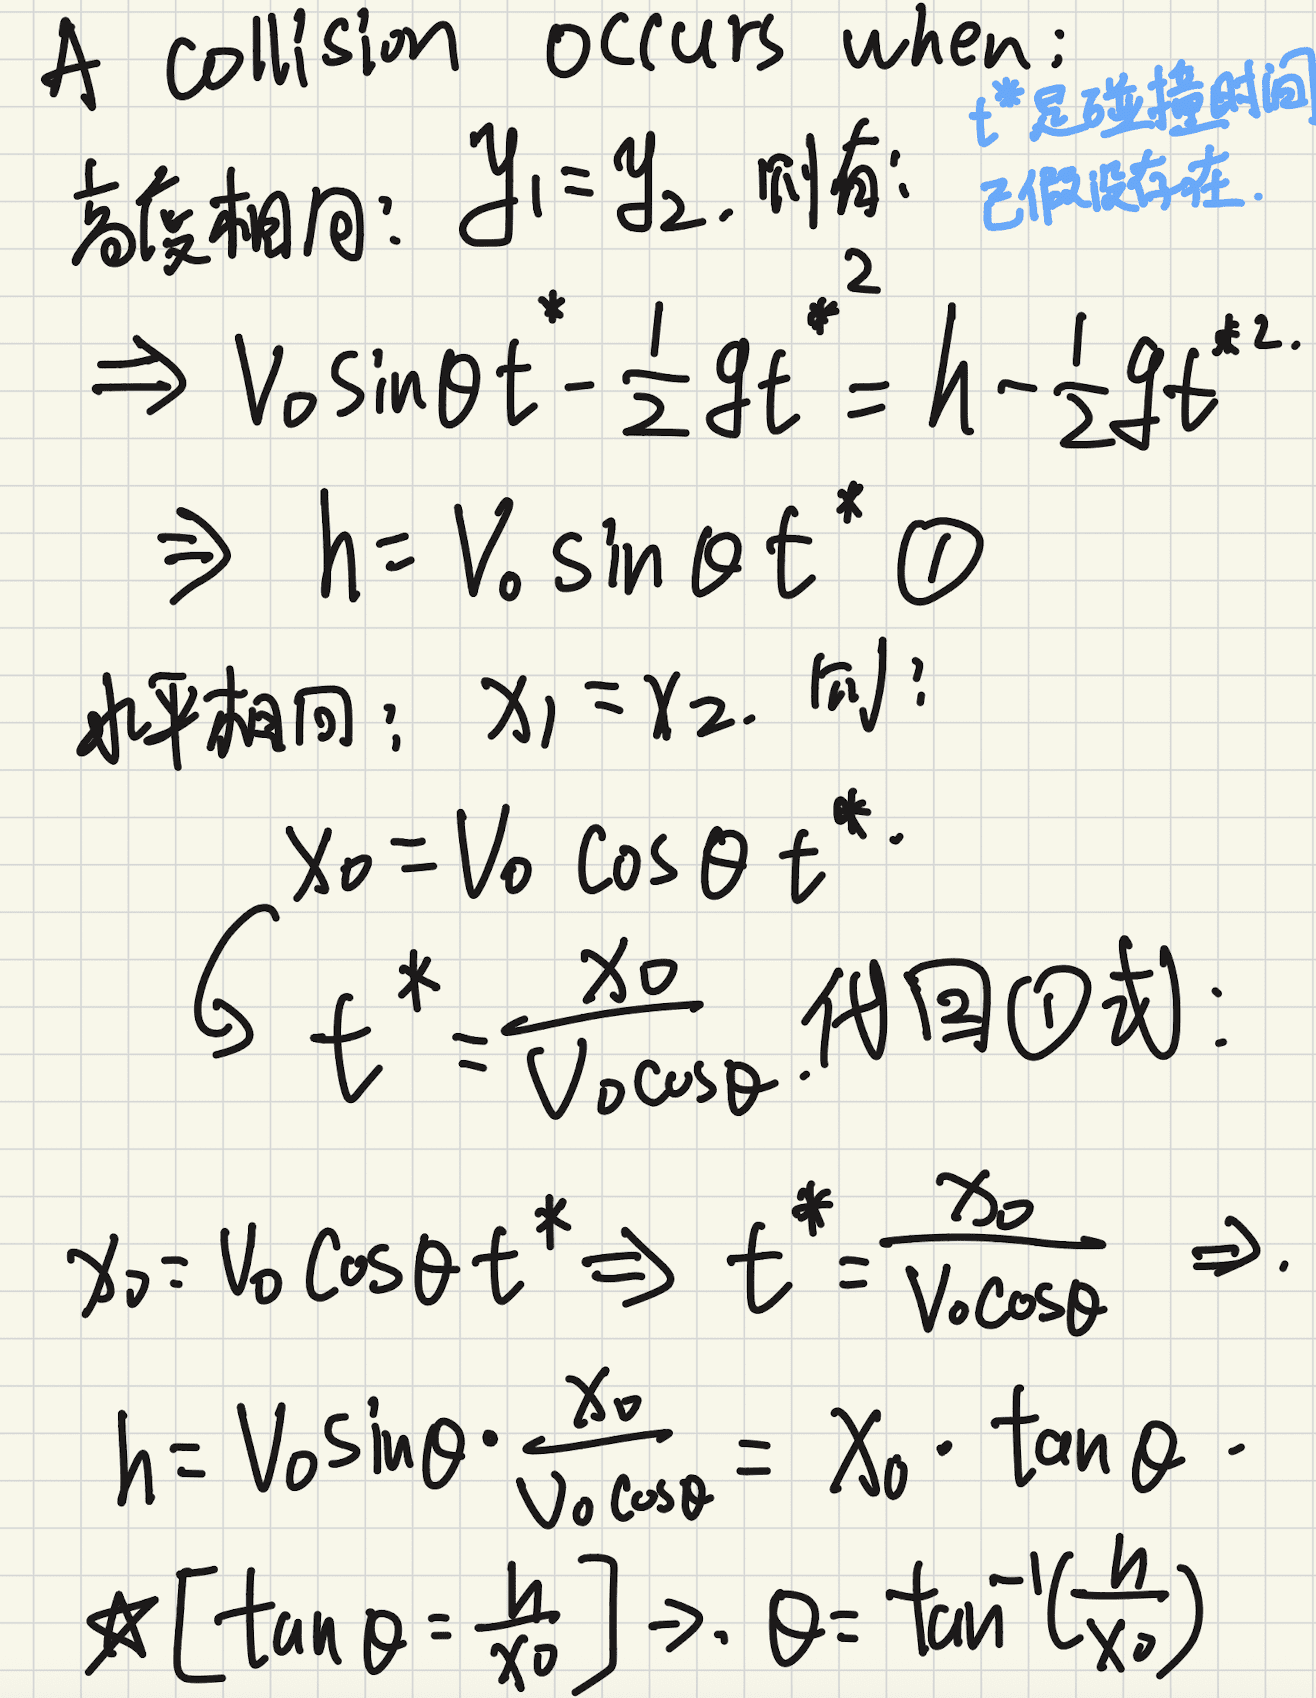 A collision occurs when:
t*是碰撞时间
已假设存在.
高度相同: y₁=y₂. 则有:
⇒ V₀sinθt* - 1/2 gt*² = h - 1/2 gt*².
⇒ h = V₀ sinθ t* ①
水平相同: x₁=x₂. 则:
x₀ = V₀ cosθ t*.
t* = x₀/(V₀cosθ). 代回①式:
x₀ = V₀ cosθ t* ⇒ t* = x₀/(V₀cosθ) ⇒.
h = V₀sinθ · x₀/(V₀cosθ) = x₀ · tanθ .
☆ [tanθ = h/x₀] →. θ = tan⁻¹(h/x₀)